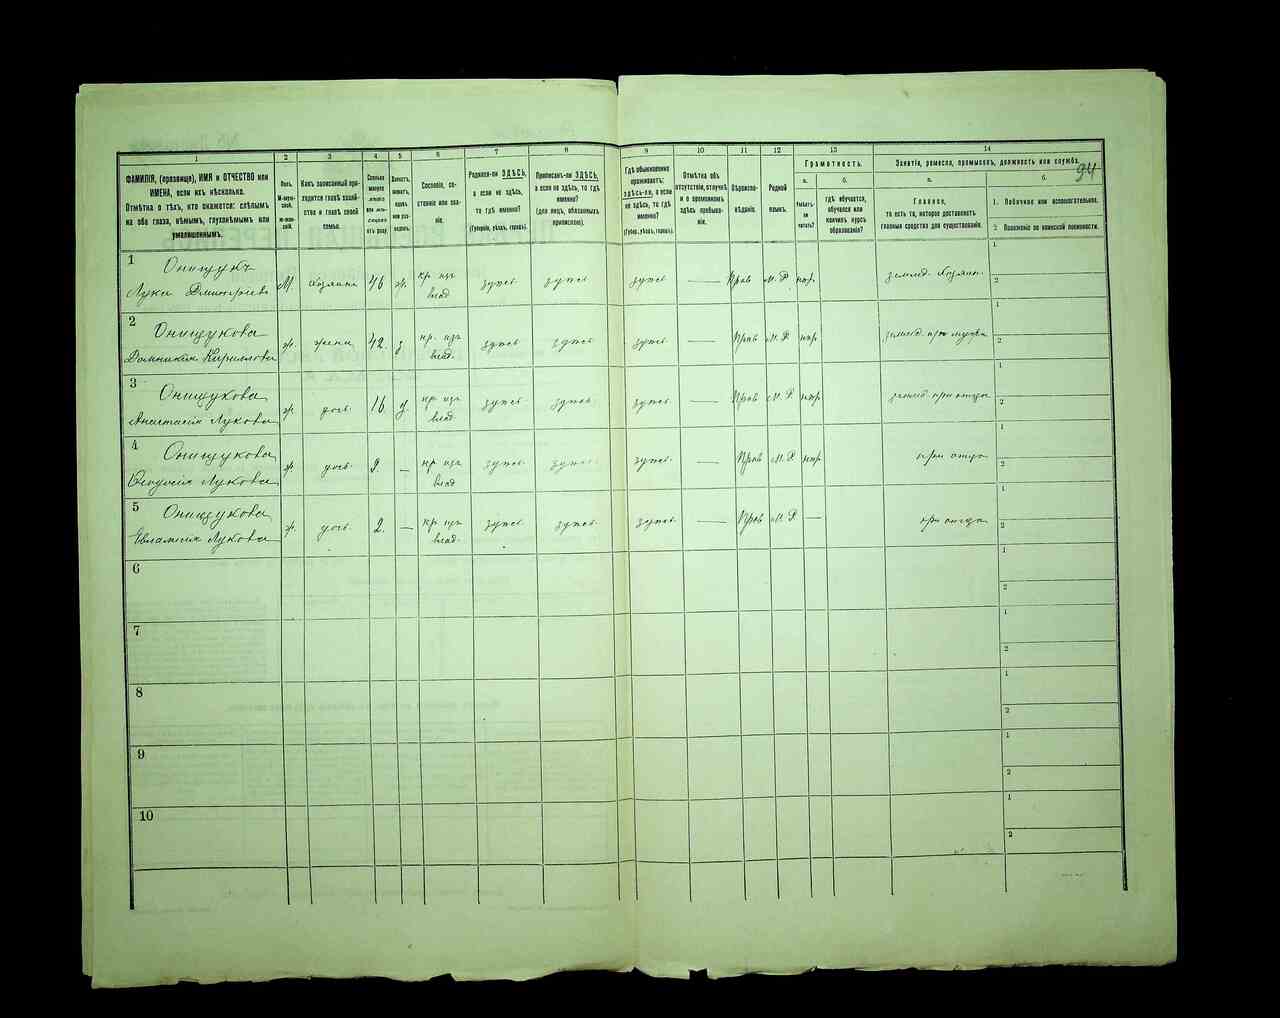 94
1 2 3 4 5 6 7 8 9 10 11 12 13 14
ФАМИЛІЯ, (прозвище), ИМЯ и ОТЧЕСТВО или
ИМЕНА, если ихъ нѣсколько.
Отмѣтка о тѣхъ, кто окажется: слѣпымъ
на оба глаза, нѣмымъ, глухонѣмымъ или
умалишеннымъ.
Полъ.
М-мужской.
Ж-женскій.
Какъ записанный приходится главѣ хозяйства и главѣ своей
семьи.
Сколько
минуло
лѣтъ
или мѣсяцевъ
отъ роду.
Холостъ,
женатъ,
вдовъ
или разведенъ.
Сословіе, состояніе или званіе.
Родился-ли ЗДѢСЬ,
а если не здѣсь,
то гдѣ именно?
(Губернія, уѣздъ, городъ).
Приписанъ-ли ЗДѢСЬ,
а если не здѣсь, то гдѣ
именно?
(для лицъ, обязанныхъ
припискою).
Гдѣ обыкновенно
проживаетъ:
здѣсь-ли, а если
не здѣсь, то гдѣ
именно?
(Губерн., уѣздъ, городъ).
Отмѣтка объ
отсутствіи, отлучкѣ
и о временномъ
здѣсь пребываніи.
Вѣроисповѣданіе.
Родной
языкъ.
Грамотность.
а.
Умѣетъ-ли
читать?
б.
гдѣ обучается,
обучался или
кончилъ курсъ
образованія?
Занятіе, ремесло, промыселъ, должность или служба.
а.
Главное,
то есть то, которое доставляетъ
главныя средства для существованія.
б.
1. Побочное или вспомогательное.
2. Положеніе по воинской повинности.
1 Онищукъ
Лука Дмитріевъ М. хозяинъ 46 ж. кр. изъ влад. здѣсь здѣсь здѣсь — Прав М. Р. нтр. землед. хозяин. 1 2
2 Онищукова
Домникия Кириллова ж. жена 42 з кр. изъ влад. здѣсь здѣсь здѣсь — Прав М. Р нтр землед. при мужѣ 1 2
3 Онищукова
Анастасія Лукова ж. доч. 16 д. кр изъ влад. здѣсь здѣсь здѣсь — Прав М. Р нтр землед. при отцѣ 1 2
4 Онищукова
Феодосія Лукова ж. доч. 9 — кр изъ влад здѣсь здѣсь здѣсь — Прав М. Р нтр при отцѣ 1 2
5 Онищукова
Евлампія Лукова ж. доч. 2. — кр изъ влад. здѣсь здѣсь здѣсь — Прав М. Р. — при отцѣ 1 2
6 1 2
7 1 2
8 1 2
9 1 2
10 1 2